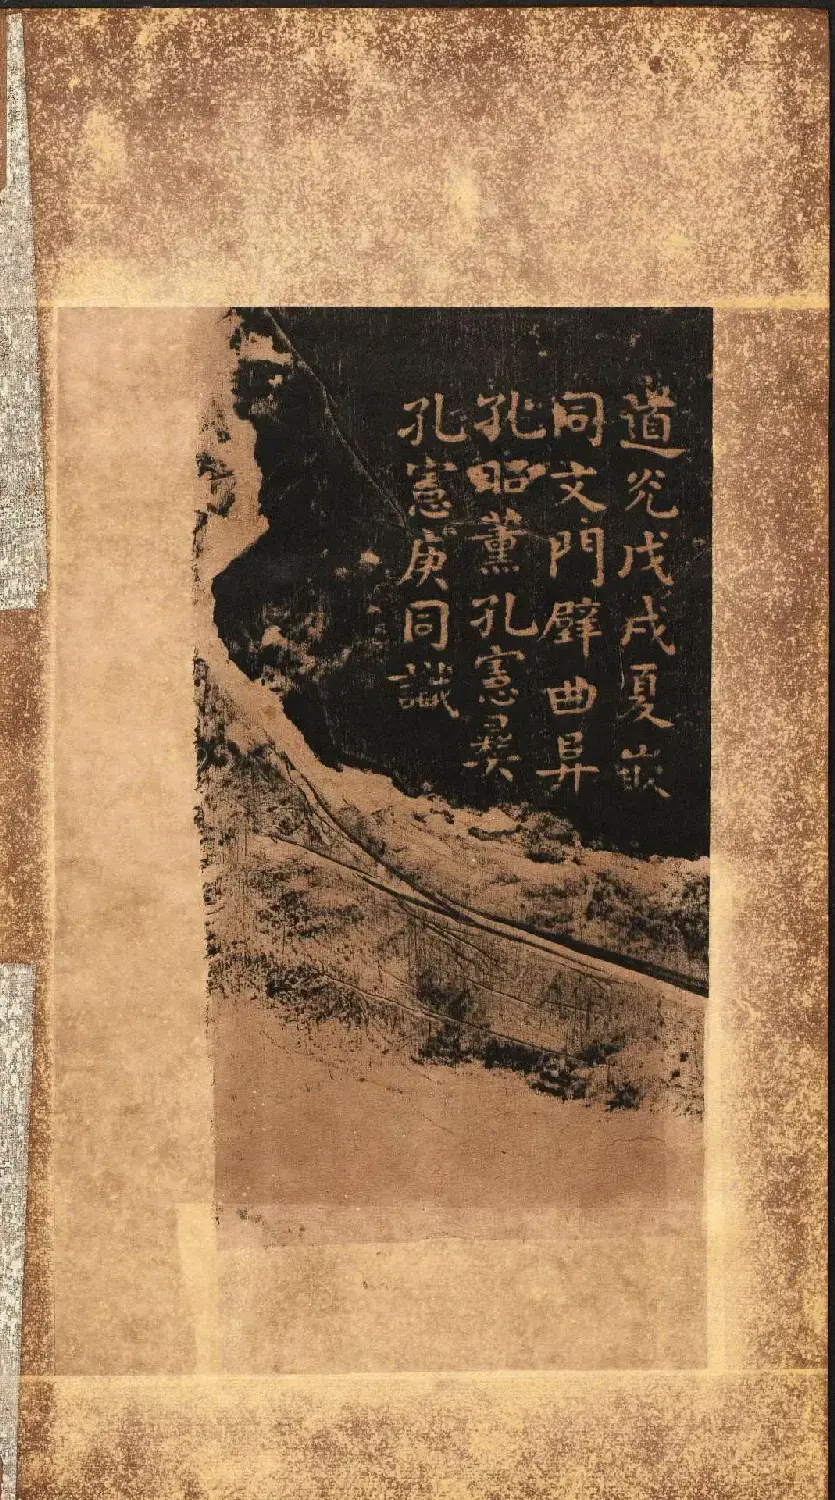 道光戊戌夏嵌
同文門壁曲阜
孔昭薰孔憲彝
孔憲庚同識